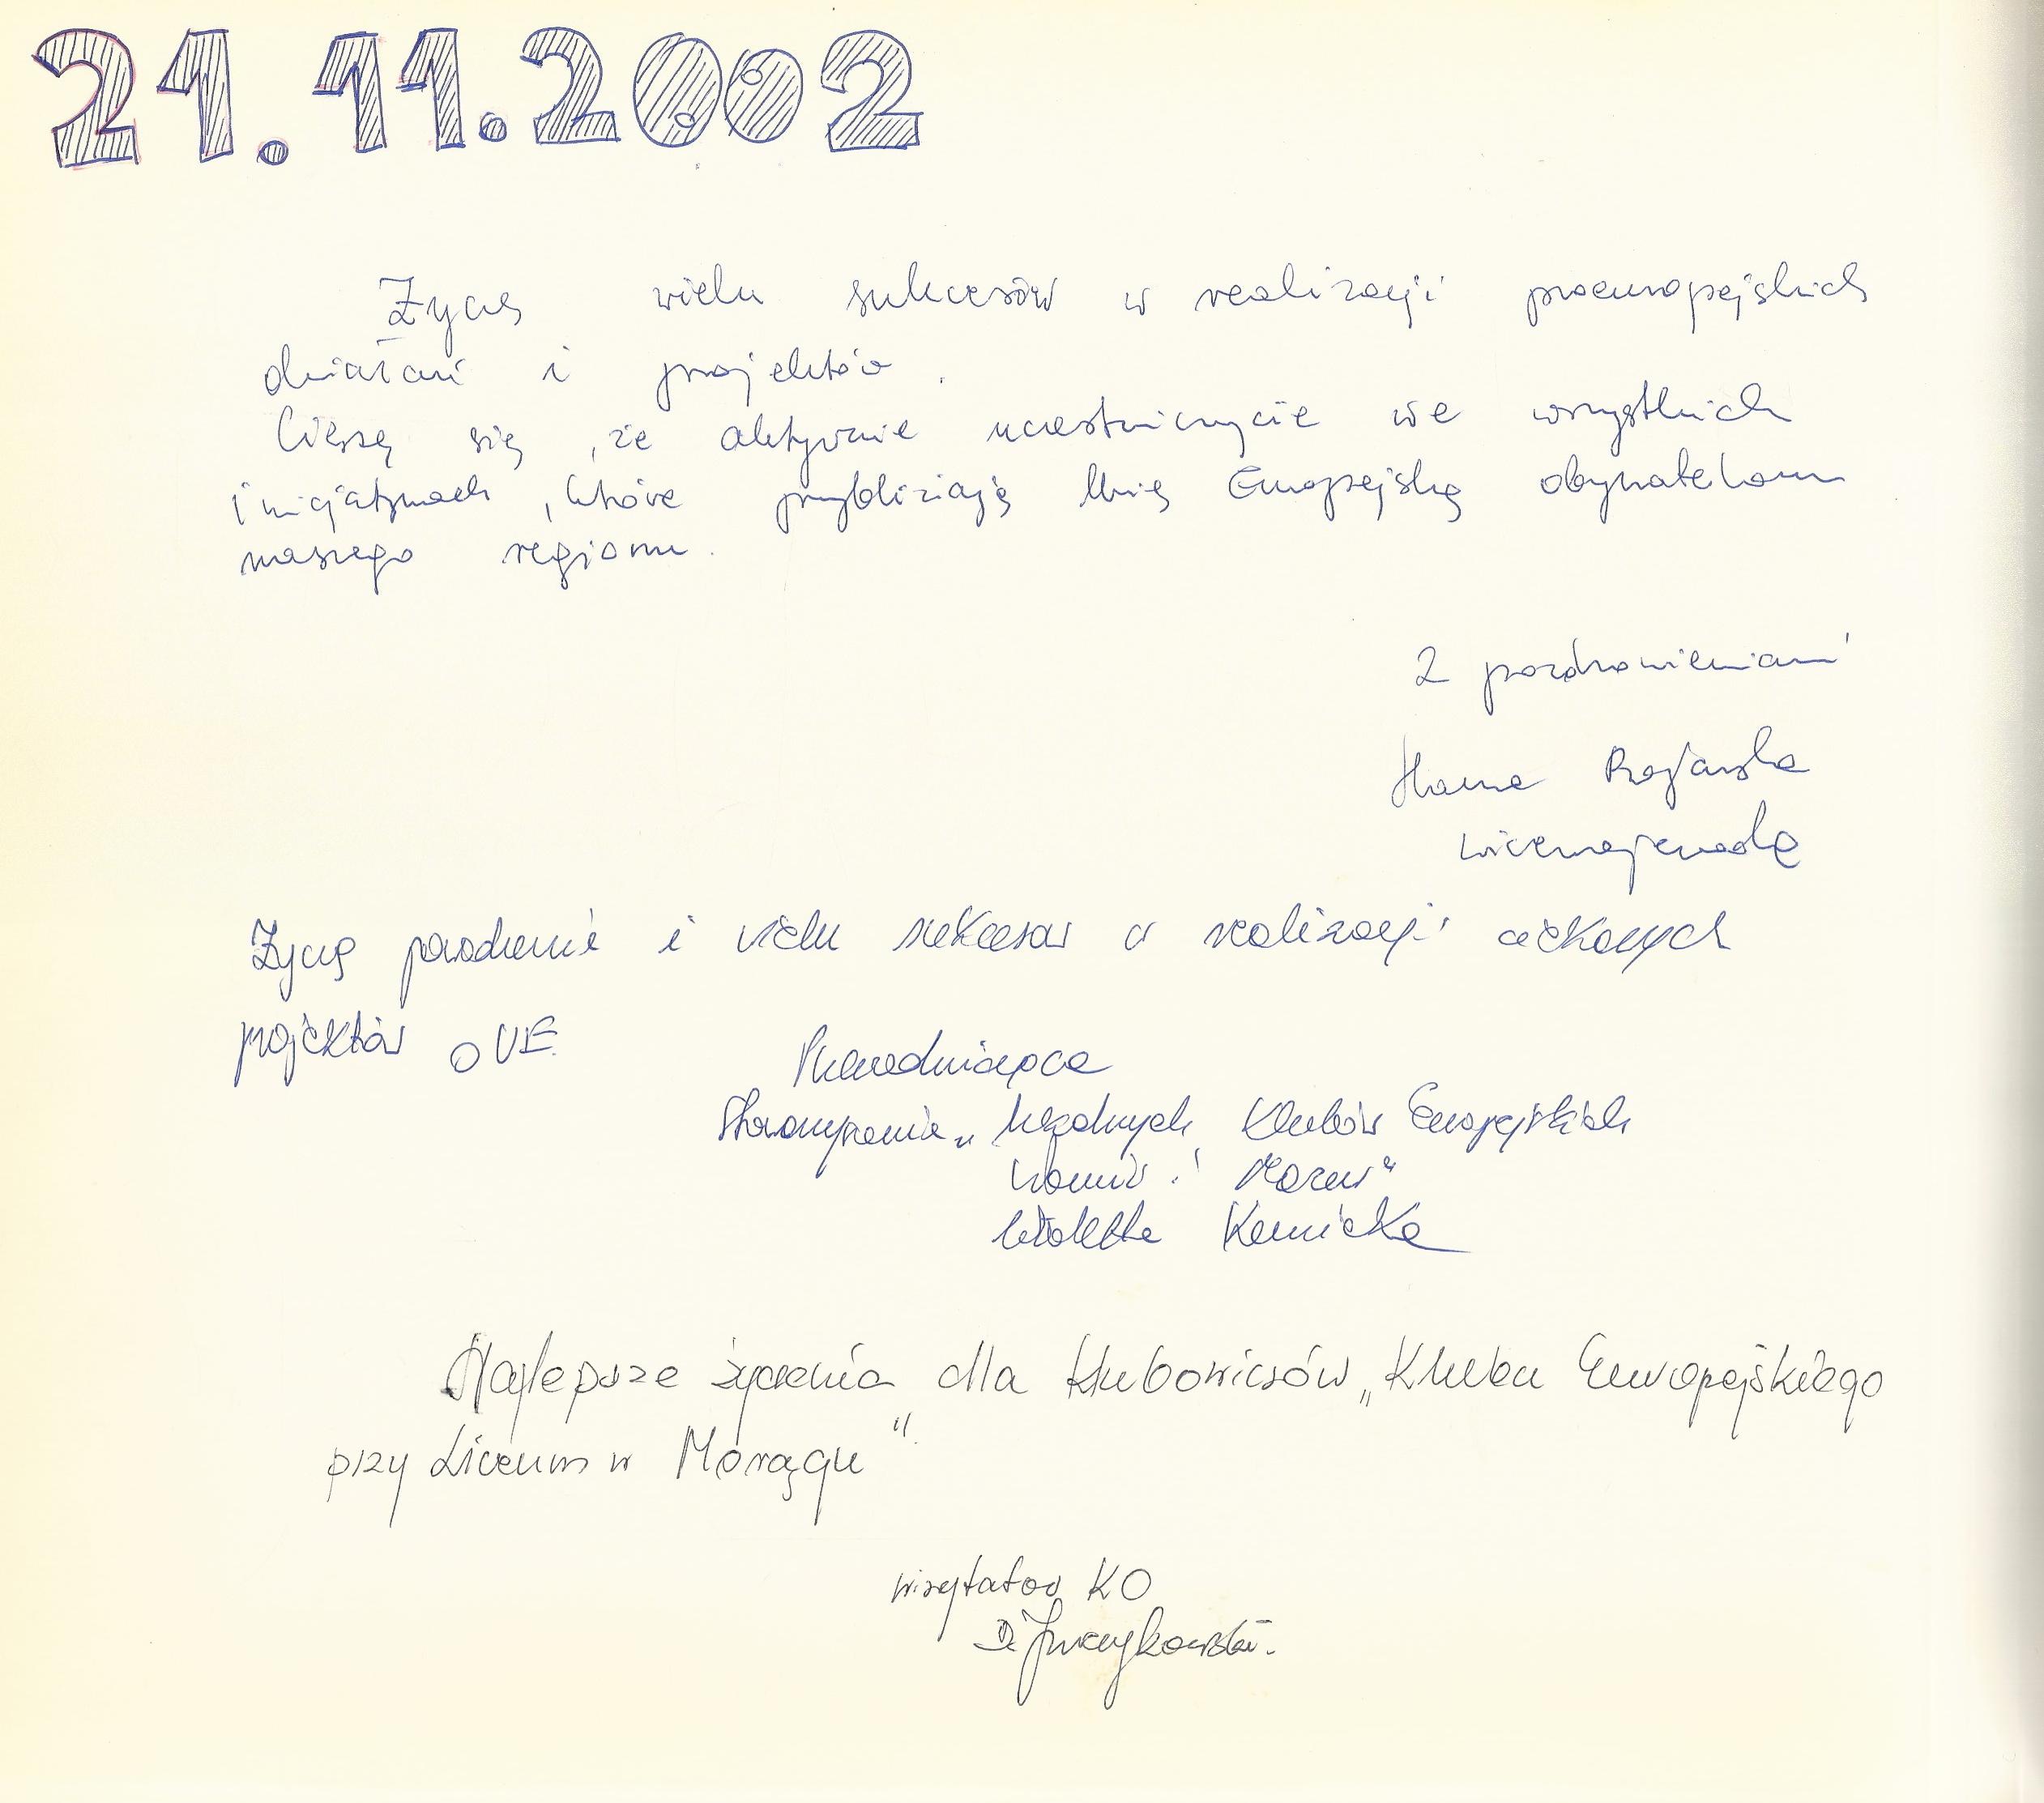 21.11.2002
Życzę wielu sukcesów w realizacji proeuropejskich
działań i projektów.
Cieszę się, że aktywnie uczestniczycie we wszystkich
inicjatywach, które przybliżają Unię Europejską obywatelom
naszego regionu.
Z pozdrowieniami
wicewojewoda
Życzę powodzenia i wielu sukcesów w realizacji ciekawych
projektów o UE.
Przewodnicząca
Stowarzyszenia „Szkolnych Klubów Europejskich
Warmii i Mazur"
Wioletta Kamicka
Najlepsze życzenia dla klubowiczów „Klubu Europejskiego
przy Liceum w Morągu".
wizytator KO